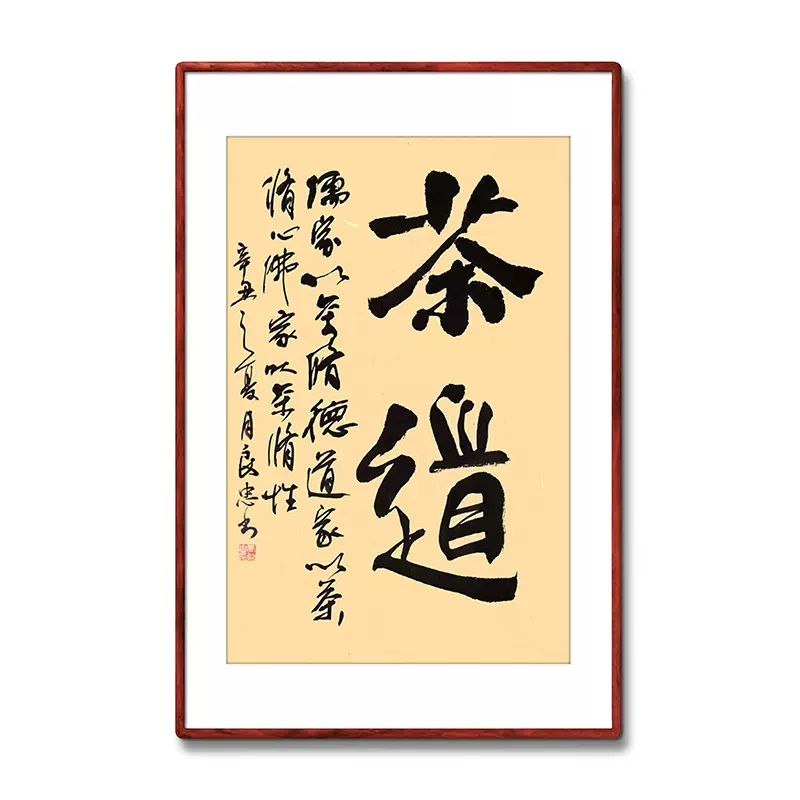 茶道
儒家以茶脩德道家以茶
脩心佛家以茶脩性
辛丑之夏月良忠书